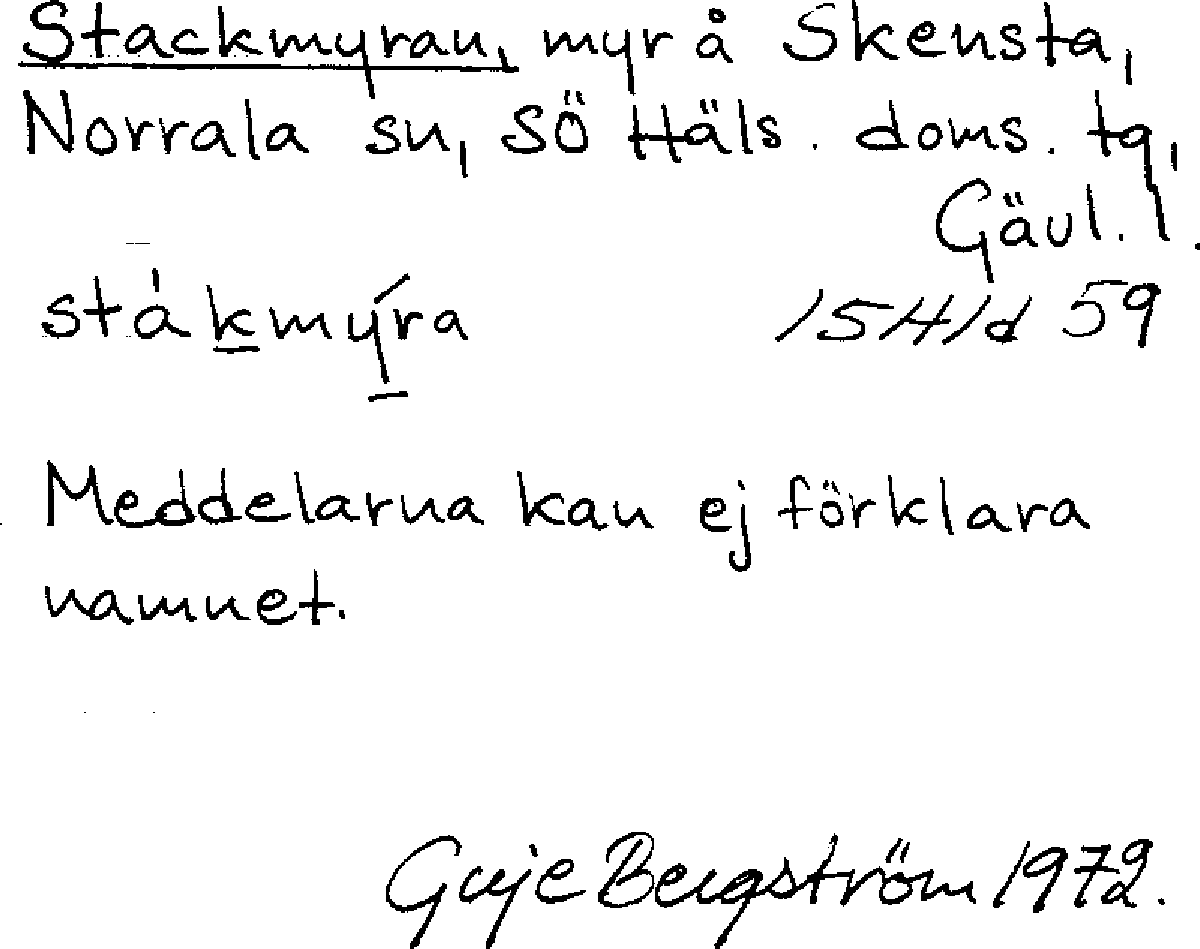 Stackmyran, myr å Skensta,
Norrala sn, SÖ Häls. doms. tg,
Gävl. l.
stákmýra 15H1d 59
Meddelarna kan ej förklara
namnet.
Guje Bergström 1972.